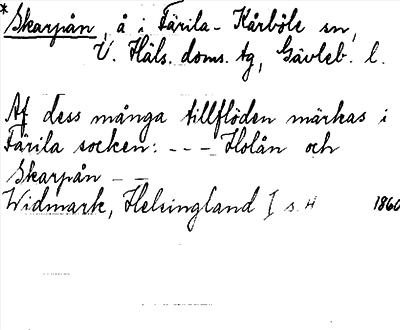 *Skarpån, å i Färila-Kårböle sn,
V. Häls. doms. tg, Gävleb. l.
Af dess många tillflöden märkas i
Färila socken: - - - Holån och
Skarpån - -
Widmark, Helsingland I s. 4 1860